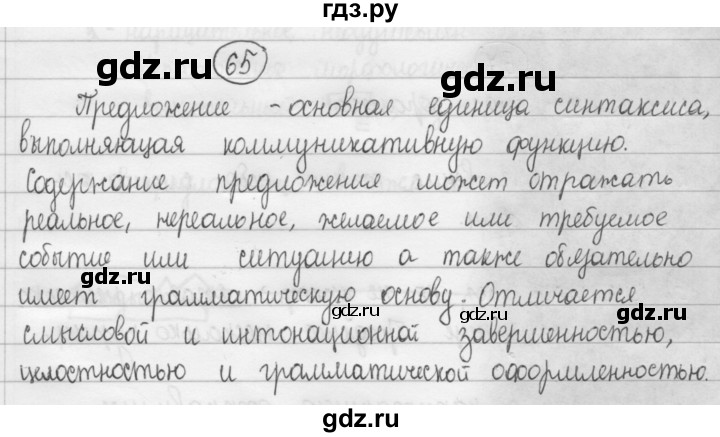 гдз.ру
gdz.ru 65 gdz.ru
Предложение - основная единица синтаксиса,
выполняющая коммуникативную функцию.
Содержание предложения может отражать
gdz.ru gdz.ru
реальное, нереальное, желаемое или требуемое
событие или ситуацию а также обязательно
gdz.ru gdz.ru
имеет грамматическую основу. Отличается
смысловой и интонационной завершенностью,
gdz.ru gdz.ru
целостностью и грамматической оформленностью.
gdz.ru